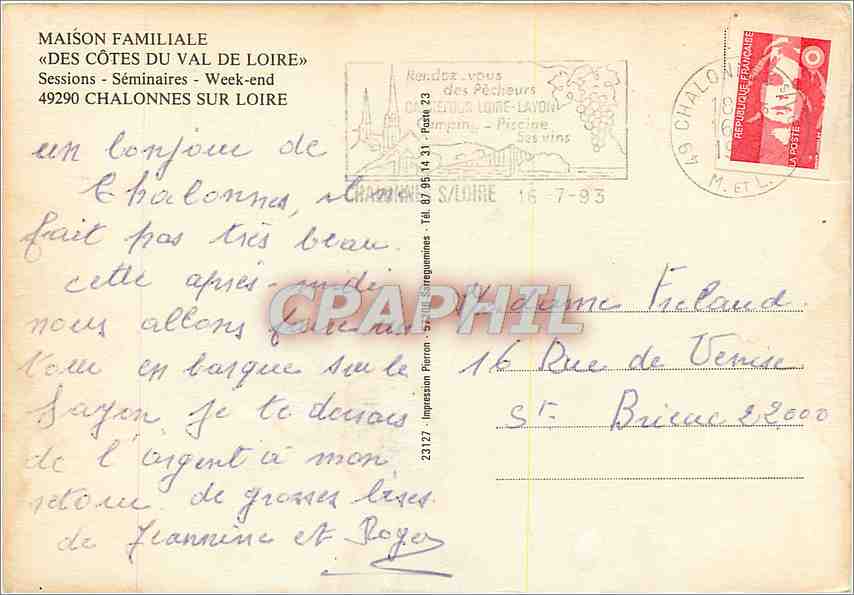 MAISON FAMILIALE
«DES CÔTES DU VAL DE LOIRE»
Sessions - Séminaires - Week-end
49290 CHALONNES SUR LOIRE
Rendez-vous
des Pêcheurs
CARREFOUR LOIRE-LAYON
Camping - Piscine
Ses vins
CHALONNES S/LOIRE 16-7-93
49 CHALONN
18
16
M. ET L.
REPUBLIQUE FRANÇAISE
LA POSTE
un bonjour de
Chalonnes,
fait pas très beau.
cette après-midi
nous allons faire un
tour en barque sur le
Layon je te donnerais
de l'argent à mon
retour. de grosses bises.
de Jeannine et Roger
23127 - Impression Pierron - 57200 Sarreguemines - Tél. 87 95 14 31 - Poste 23
Madame Freland
16 Rue de Venise
St Brieuc 22000
CPAPHIL